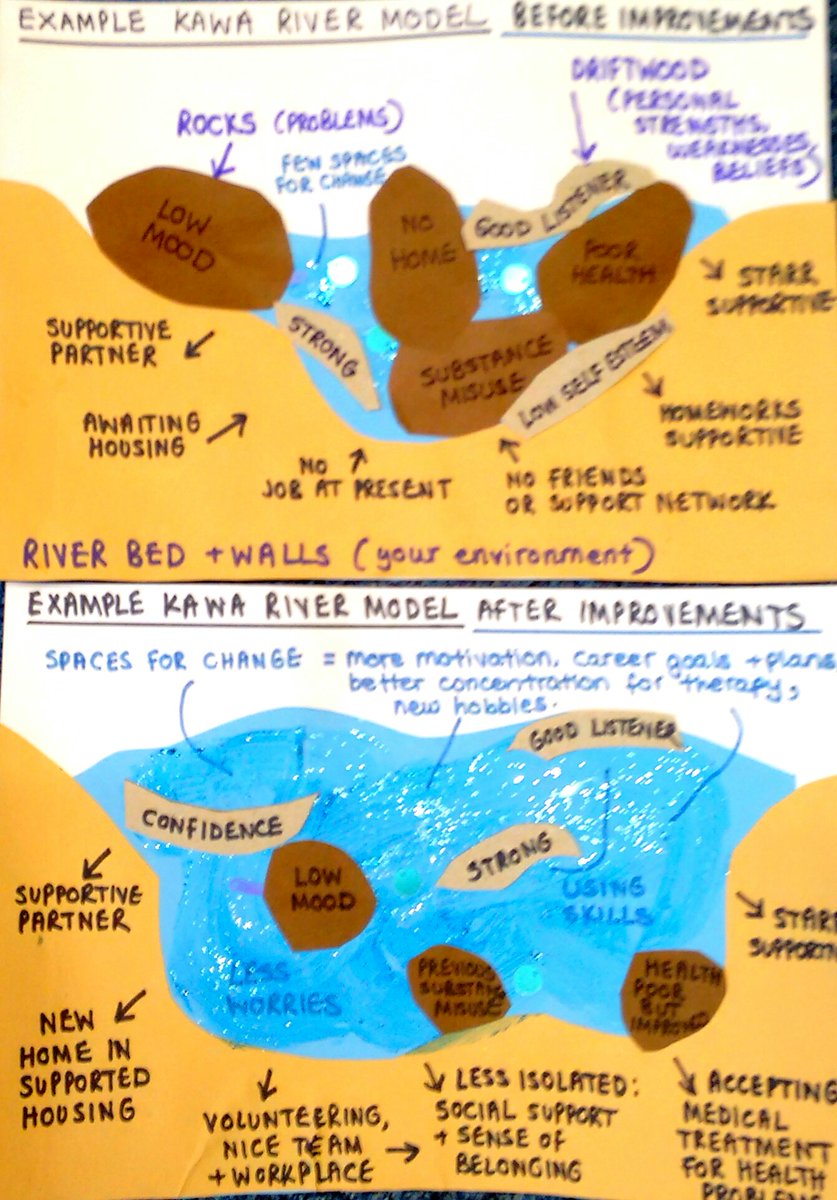 EXAMPLE KAWA RIVER MODEL BEFORE IMPROVEMENTS
DRIFTWOOD
(PERSONAL
STRENGTHS,
WEAKNESSES,
BELIEFS)
ROCKS (PROBLEMS)
FEW SPACES
FOR CHANGE
LOW
MOOD
NO
HOME
GOOD LISTENER
POOR
HEALTH
STARR
SUPPORTIVE
SUPPORTIVE
PARTNER
STRONG
SUBSTANCE
MISUSE
LOW SELF ESTEEM
AWAITING
HOUSING
HOMEWORKS
SUPPORTIVE
NO
JOB AT PRESENT
NO FRIENDS
OR SUPPORT NETWORK
RIVER BED + WALLS (your environment)
EXAMPLE KAWA RIVER MODEL AFTER IMPROVEMENTS
SPACES FOR CHANGE = more motivation, career goals + plans
better concentration for therapy,
new hobbies.
GOOD LISTENER
CONFIDENCE
STRONG
LOW
MOOD
USING
SKILLS
SUPPORTIVE
PARTNER
LESS
WORRIES
PREVIOUS
SUBSTANC
MISUSE
HEALTH
POOR
BUT
IMPROVED
NEW
HOME IN
SUPPORTED
HOUSING
VOLUNTEERING,
NICE TEAM
+ WORKPLACE
LESS ISOLATED:
SOCIAL SUPPORT
+ SENSE OF
BELONGING
ACCEPTING
MEDICAL
TREATMENT
FOR HEALTH